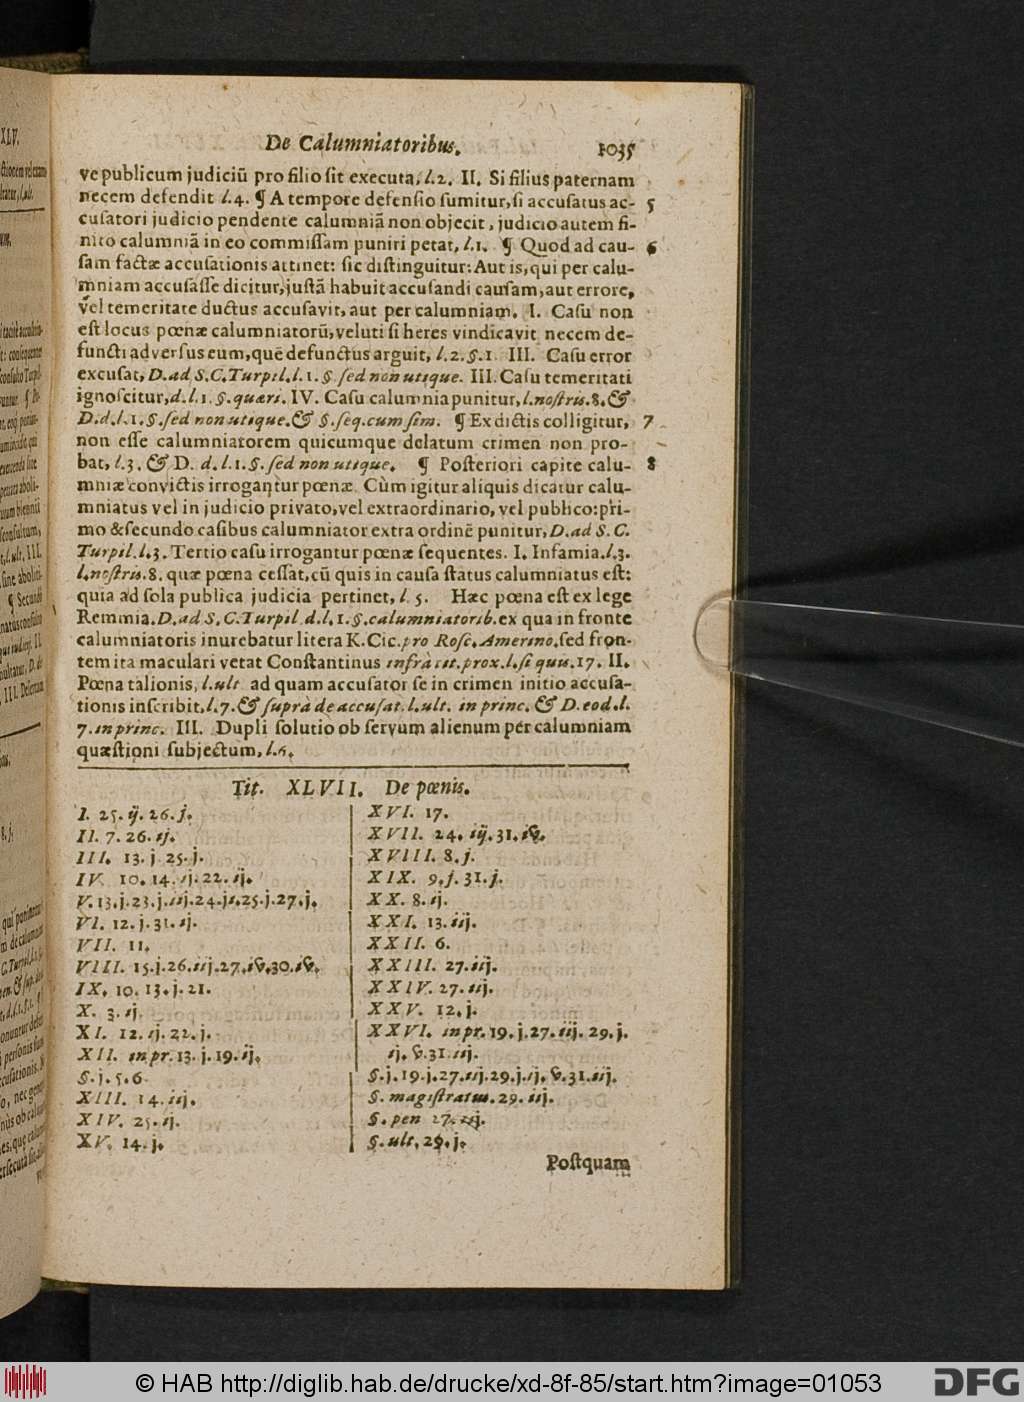 De Calumniatoribus. 1035
ve publicum judiciũ pro filio sit executa, l.2. II. Si filius paternam
necem defendit l.4. ¶ A tempore defensio sumitur, si accusatus ac- 5
cusatori judicio pendente calumniã non objecit, judicio autem fi-
nito calumniã in eo commissam puniri petat, l.1. ¶ Quod ad cau- 6
sam factæ accusationis attinet: sic distinguitur: Aut is, qui per calu-
mniam accusasse dicitur, justã habuit accusandi causam, aut errore,
vel temeritate ductus accusavit, aut per calumniam. I. Casu non
est locus pœnæ calumniatorũ, veluti si heres vindicavit necem de-
functi adversus eum, quẽ defunctus arguit, l.2.§.1. III. Casu error
excusat, D. ad S.C. Turpil. l.1.§. sed non utique. III. Casu temeritati
ignoscitur, d.l.1.§. quæri. IV. Casu calumnia punitur, l. nostris. 8. &
D. d.l.1.§. sed non utique. & §. seq. cum sim. ¶ Ex dictis colligitur, 7
non esse calumniatorem quicumque delatum crimen non pro-
bat, l.3. & D. d.l.1.§. sed non utique. ¶ Posteriori capite calu- 8
mniæ convictis irrogantur pœnæ. Cùm igitur aliquis dicatur calu-
mniatus vel in judicio privato, vel extraordinario, vel publico: pri-
mo & secundo casibus calumniator extra ordinẽ punitur, D. ad S.C.
Turpil. l.3. Tertio casu irrogantur pœnæ sequentes. I. Infamia. l.3.
l. nostris. 8. quæ pœna cessat, cũ quis in causa status calumniatus est:
quia ad sola publica judicia pertinet, l 5. Hæc pœna est ex lege
Remmia. D. ad S.C. Turpil d.l.1.§. calumniatorib. ex qua in fronte
calumniatoris inurebatur litera K. Cic. pro Rosc. Amerino. sed fron-
tem ita maculari vetat Constantinus infrà tit. prox. l. si quis. 17. II.
Pœna talionis, l. ult ad quam accusator se in crimen initio accusa-
tionis inscribit, l.7. & suprà de accusat. l. ult. in princ. & D. eod. l.
7. in princ. III. Dupli solutio ob servum alienum per calumniam
quæstioni subjectum, l.6.
Tit. XLVII. De pœnis.
I. 25. ij. 26. j.
II. 7. 26. ij.
III. 13. j 25. j.
IV. 10. 14. ij. 22. ij.
V. 13. j. 23. j. iij. 24. j. 25. j. 27. j.
VI. 12. j. 31. ij.
VII. 11.
VIII. 15. j. 26. iij. 27. iv. 30. iv.
IX. 10. 13. j. 21.
X. 3. ij.
XI. 12. ij. 22. j.
XII. in pr. 13. j. 19. ij.
§. j. 5. 6.
XIII. 14. iij.
XIV. 25. ij.
XV. 14. j.
XVI. 17.
XVII. 24. iij. 31. iv.
XVIII. 8. j.
XIX. 9. j. 31. j.
XX. 8. ij.
XXI. 13. iij.
XXII. 6.
XXIII. 27. iij.
XXIV. 27. iij.
XXV. 12. j.
XXVI. in pr. 19. j. 27. iij. 29. j.
ij. v. 31. iij.
§. j. 19. j. 27. iij. 29. j. ij. v. 31. iij.
§. magistratus. 29. iij.
§. pen 27. iij.
§. ult. 29. j.
Postquam
© HAB http://diglib.hab.de/drucke/xd-8f-85/start.htm?image=01053
DFG